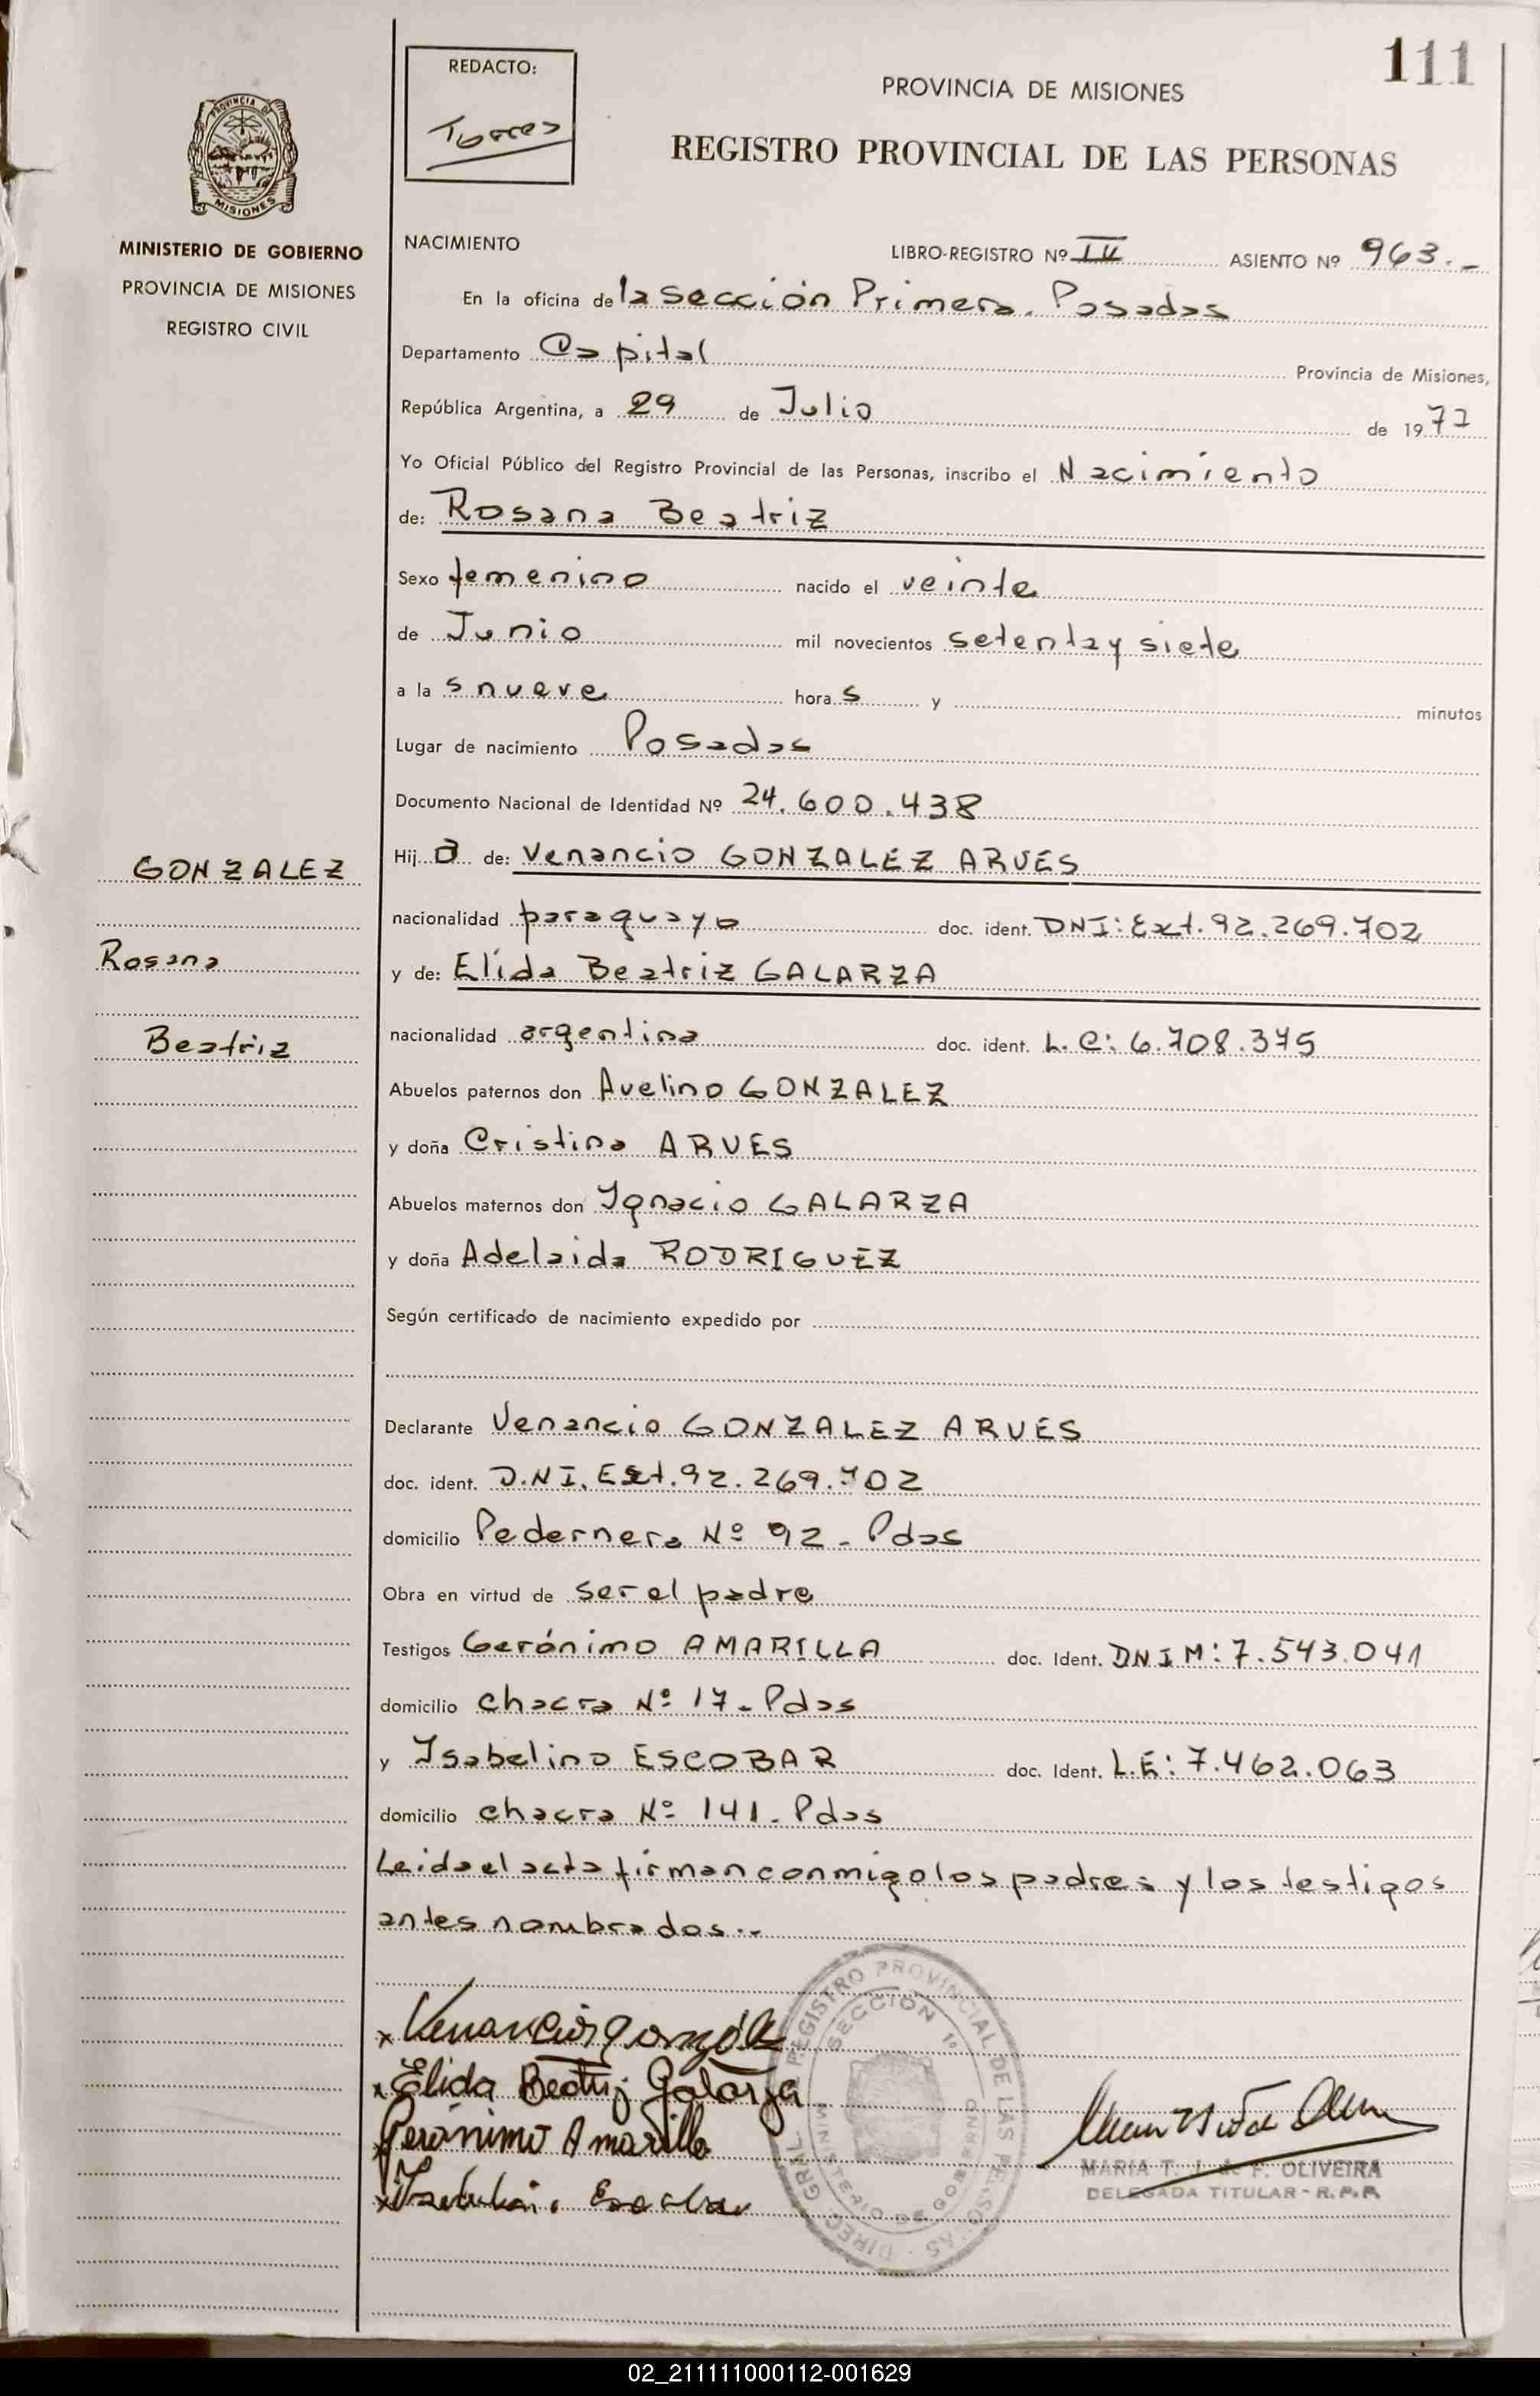 111
REDACTO:
Torres
PROVINCIA DE MISIONES
REGISTRO PROVINCIAL DE LAS PERSONAS
PROVINCIA DE MISIONES
MINISTERIO DE GOBIERNO
PROVINCIA DE MISIONES
REGISTRO CIVIL
NACIMIENTO LIBRO-REGISTRO Nº IV ASIENTO Nº 963.-
En la oficina de la Sección Primera. Posadas
Departamento Capital Provincia de Misiones,
República Argentina, a 29 de Julio de 1977
Yo Oficial Público del Registro Provincial de las Personas, inscribo el Nacimiento
de: Rosana Beatriz
Sexo femenino nacido el veinte
de Junio mil novecientos setenta y siete
a la s nueve hora s y minutos
Lugar de nacimiento Posadas
Documento Nacional de Identidad Nº 24.600.438
GONZALEZ
Hij a de: Venancio GONZALEZ ARVES
nacionalidad paraguayo doc. ident. DNI: Ext. 92.269.702
Rosana
y de: Elida Beatriz GALARZA
Beatriz
nacionalidad argentina doc. ident. L.C: 6.708.375
Abuelos paternos don Avelino GONZALEZ
y doña Cristina ARVES
Abuelos maternos don Ignacio GALARZA
y doña Adelaida RODRIGUEZ
Según certificado de nacimiento expedido por
Declarante Venancio GONZALEZ ARVES
doc. ident. D.NI. Ext. 92.269.702
domicilio Pedernera Nº 92 - Pdas
Obra en virtud de ser el padre
Testigos Gerónimo AMARILLA doc. Ident. DNIM: 7.543.041
domicilio chacra Nº 17 - Pdas
y Isabelino ESCOBAR doc. Ident. L.E: 7.462.063
domicilio chacra Nº 141 - Pdas
Leida el acta firman conmigo los padres y los testigos
antes nombrados.-
x Venancio Gonzále
x Elida Beatriz Galarza
Gerónimo Amarilla
x Escobar
DIREC. GRAL. REGISTRO PROVINCIAL DE LAS PERSONAS
SECCION 1ª
MINISTERIO DE GOBIERNO
MARIA T. J. de F. OLIVEIRA
DELEGADA TITULAR - R.P.P.
02_211111000112-001629